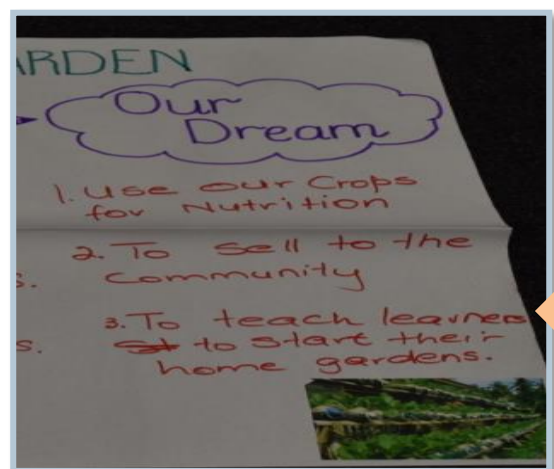 ARDEN
Our
Dream
1. Use our Crops
for Nutrition
2. To sell to the
s. community
3. To teach learners
s. to start their
home gardens.